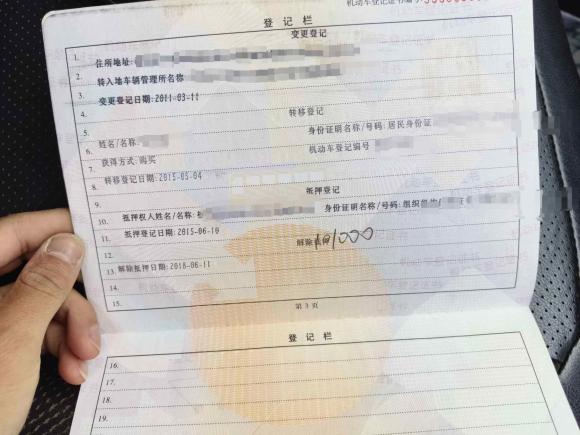 机动车登记证书编号:
登记栏
变更登记
1. 住所地址:
2. 转入地车辆管理所名称
3. 变更登记日期:2011-03-11
4.
5. 转移登记
6. 姓名/名称: 身份证明名称/号码:居民身份证
7. 获得方式:购买 机动车登记编号
8. 转移登记日期:2015-05-04
9. 抵押登记
10. 抵押权人姓名/名称: 身份证明名称/号码:组织
11. 抵押登记日期:2015-06-10
12. 解除抵押 101000
13. 解除抵押日期:2018-06-11
14.
15.
第 3 页
登记栏
16.
17.
18.
19.